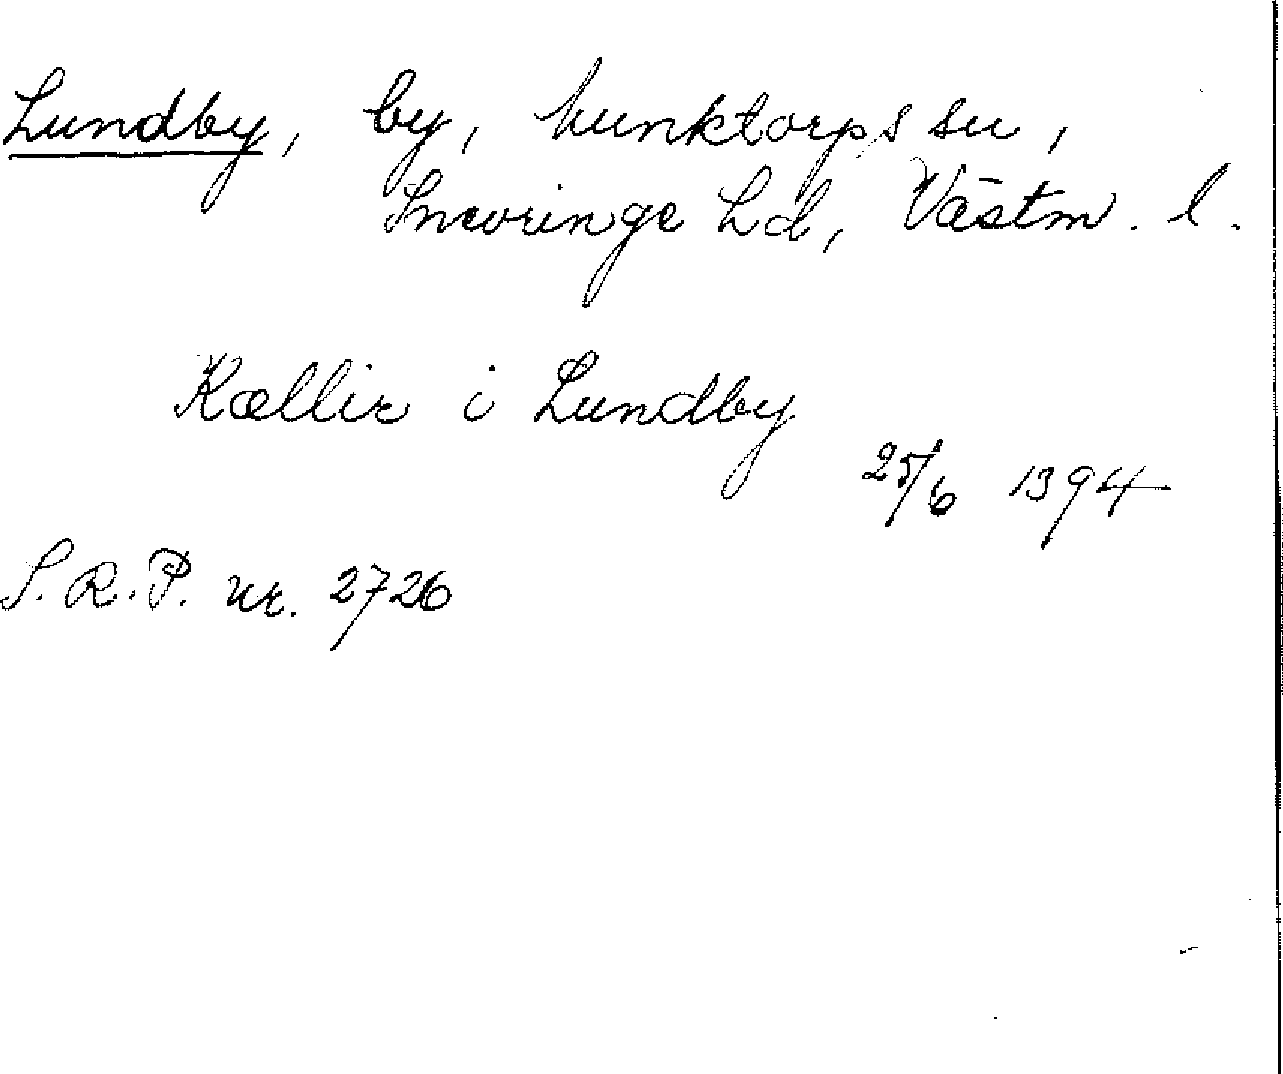 Lundby, by, Munktorps sn,
Snevringe hd, Västm. l.
Kællir i Lundby
25/6 1394
S.R.P. nr. 2726